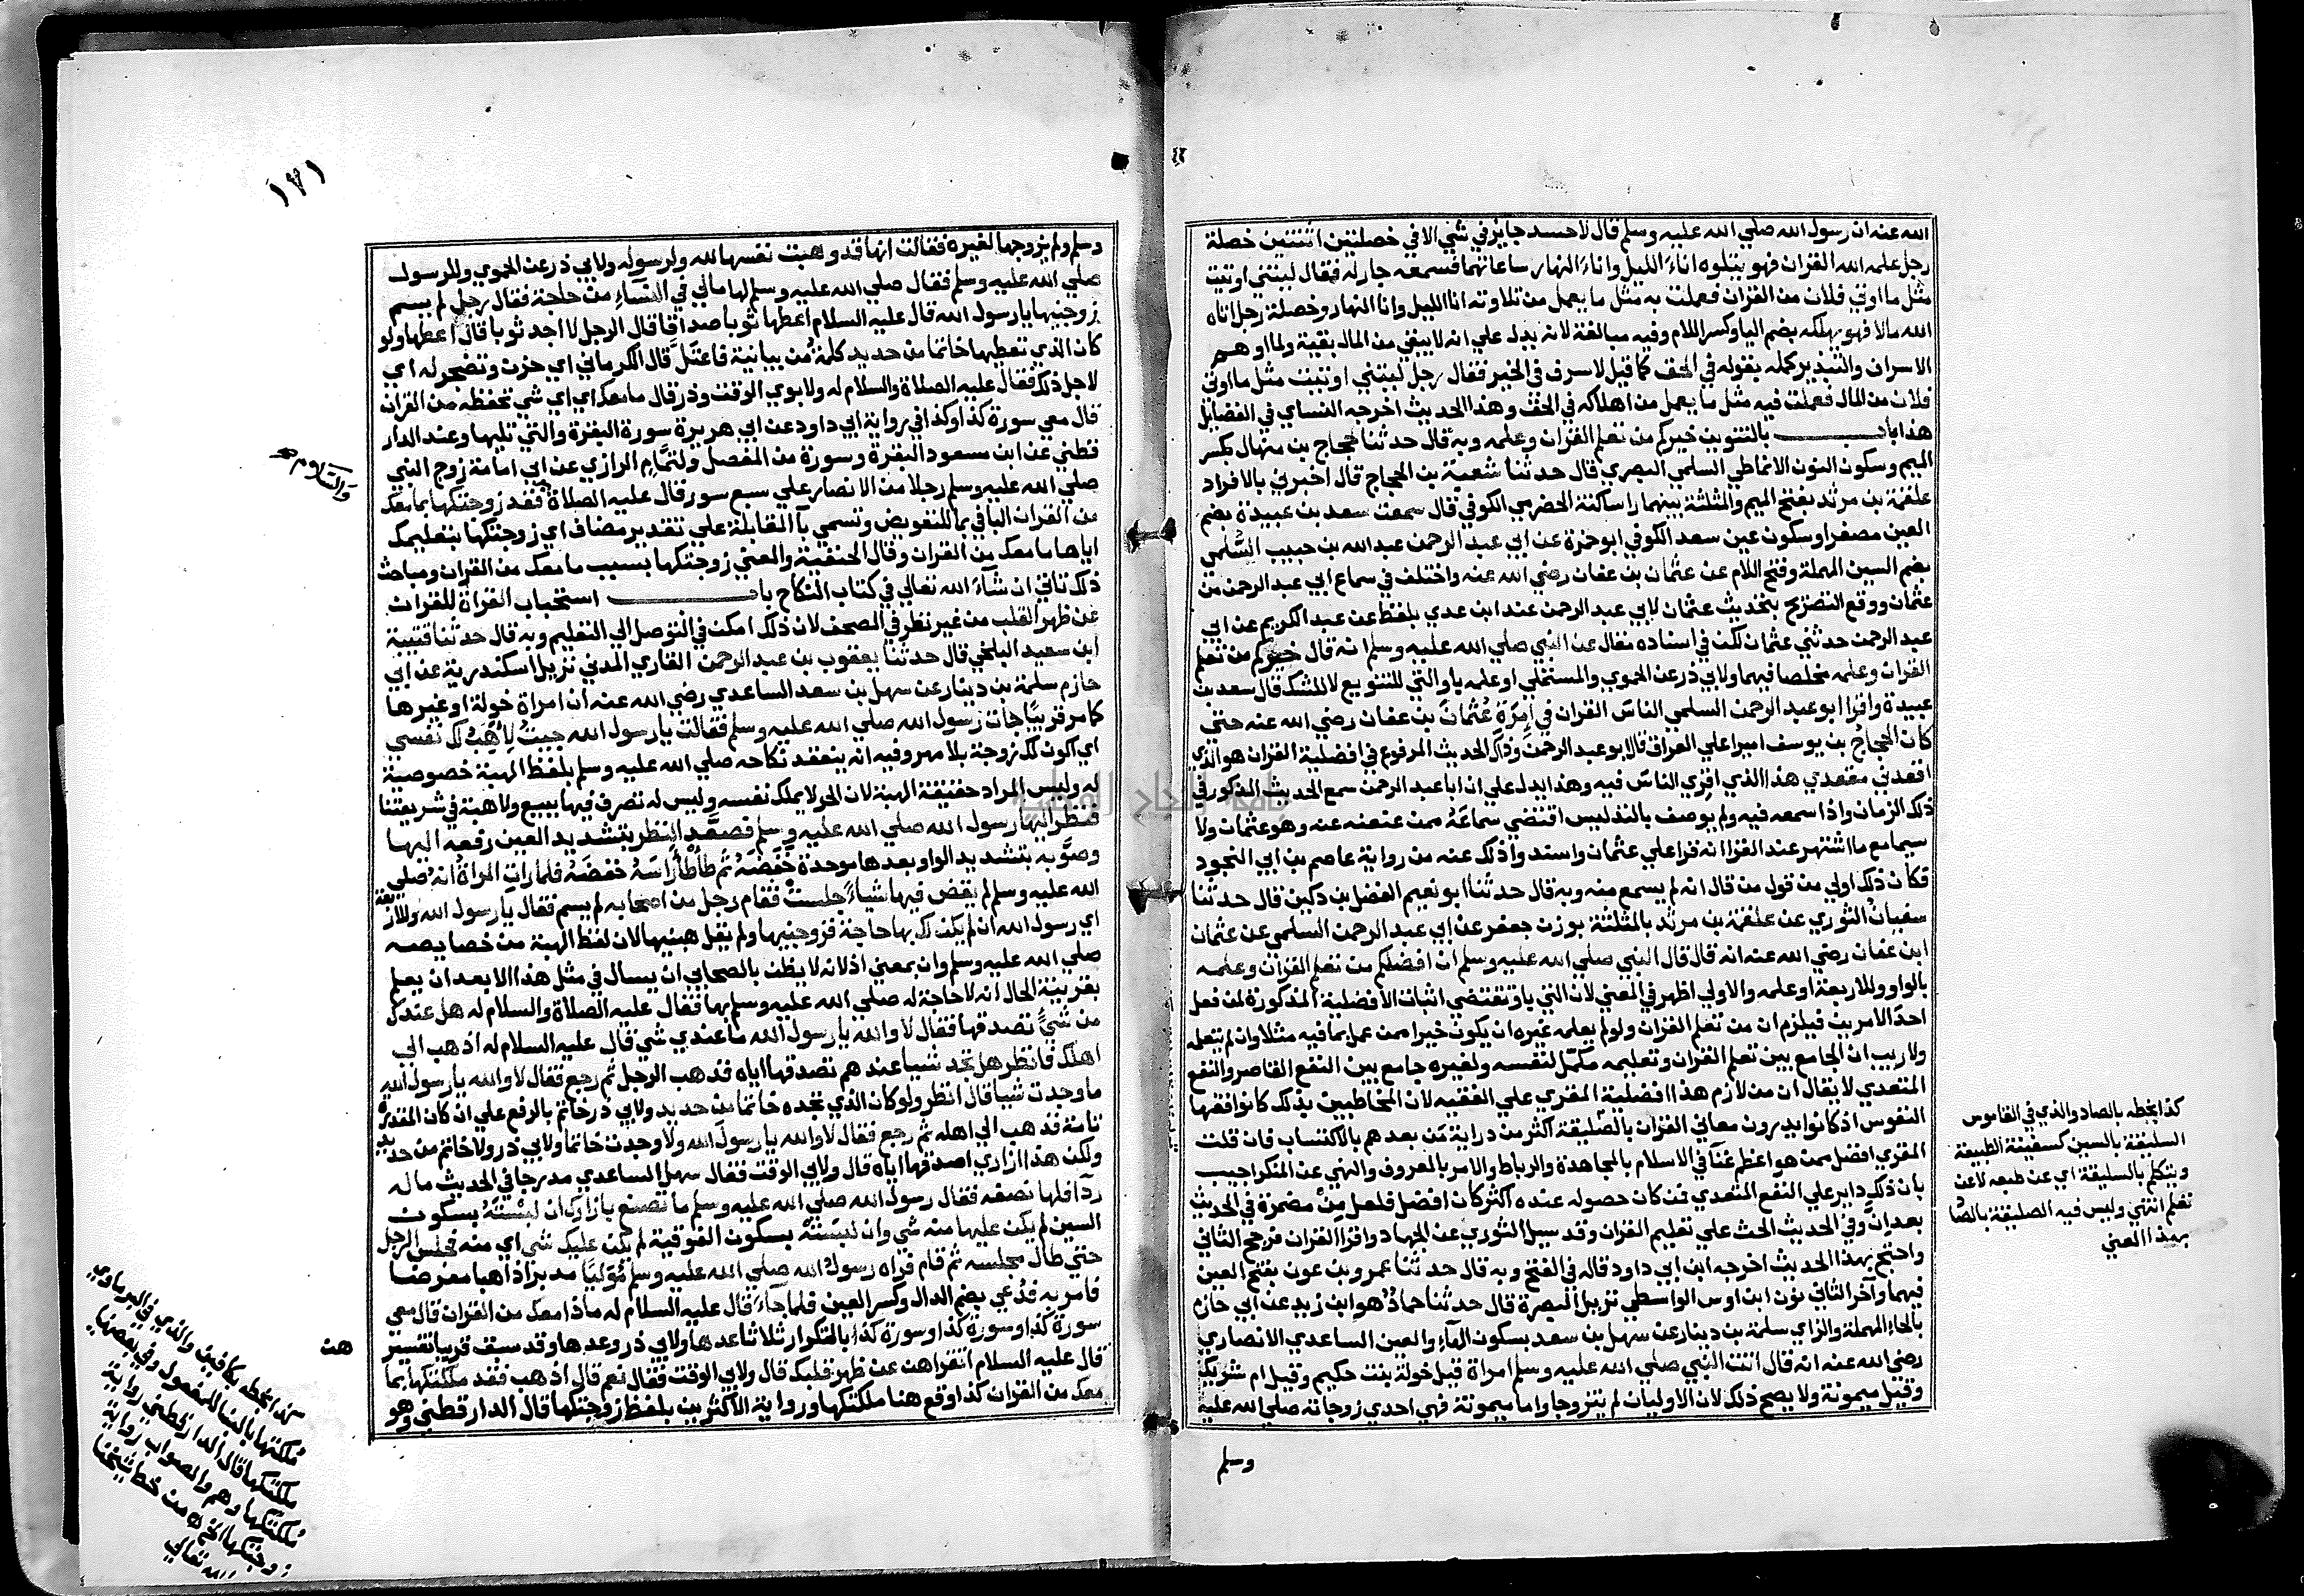 الله عنه ان رسول الله صلي الله عليه وسلم قال لا حسد جايز في شي الا في خصلتين اثنتين خصلة
رجل علمه الله القران فهو يتلوه اناء الليل واناء النهار ساعاتهما فسمعه جار له فقال ليتني اوتيت
مثل ما اوتي فلان من القران فعملت به مثل ما يعمل من تلاوته انا الليل وانا النهار وخصلة رجل اتاه
الله مالا فهو يهلكه بضم اليا وكسر اللام وفيه مبالغة لانه يدل علي انه لا يبقي من المال بقية ولما اوهم
الاسراف والتبذير كمله بقوله في الحق كما قيل لا سرف في الخير فقال رجل ليتني اوتيت مثل ما اوتي
فلان من المال فعملت فيه مثل ما يعمل من اهلاكه في الحق وهذا الحديث اخرجه النساي في الفضايل
هذا باب بالتنوين خيركم من تعلم القران وعلمه وبه قال حدثنا حجاج بن منهال بكسر
الميم وسكون النون الانماطي السلمي البصري قال حدثنا شعبة بن الحجاج قال اخبرني بالافراد
علقمة بن مرثد بفتح الميم والمثلثة بينهما را ساكنة الحضرمي الكوفي قال سمعت سعد بن عبيدة بضم
العين مصغرا وسكون عين سعد الكوفي ابو حمزة عن ابي عبد الرحمن عبد الله بن حبيب السُّلمي
بضم السين المهملة وفتح اللام عن عثمان بن عفان رضي الله عنه واختلف في سماع ابي عبد الرحمن من
عثمان ووقع التصريح بتحديث عثمان لابي عبد الرحمن عند ابن عدي بلفظ عن عبد الكريم عن ابي
عبد الرحمن حدثني عثمان لكن في اسناده مقال عن النبي صلي الله عليه وسلم انه قال خيركم من تعلم
القران وعلمه مخلصا فيهما ولابي ذر عن الحموي والمستملي او علمه باو التي للتنويع لا للشك قال سعد بن
عبيدة واقرا ابو عبد الرحمن السلمي الناسَ القران في اِمرَة عُثمانَ بن عفان رضي الله عنه حتي
كان الحجاجُ بن يوسف اميرا علي العراق قال ابو عبد الرحمن وذاك الحديث المرفوع في افضلية القران هو الذي
اقعدني مقعدي هذا الذي اقري الناسَ فيه وهذا يدل علي ان ابا عبد الرحمن سمع الحديث المذكور في
ذلك الزمان واذا سمعه فيه ولم يوصف بالتدليس اقتضي سماعَهُ ممن عنعنه عنه وهو عثمان ولا
سيما مع ما اشتهر عند القرا انه قرا علي عثمان واسندوا ذلك عنه من رواية عاصم بن ابي النجود
فكان ذلك اولي من قول من قال انه لم يسمع منه وبه قال حدثنا ابو نعيم الفضل بن دكين قال حدثنا
سفيانُ الثوري عن علقمة بن مرثد بالمثلثة بوزن جعفر عن ابي عبد الرحمن السلمي عن عثمان
ابن عفان رضي الله عنه انه قال قال النبي صلي الله عليه وسلم ان افضلكم من تعلم القران وعلمه
بالواو وللاربعة او علمه والاولي اظهر في المعني لان التي باو تقتضي اثبات الافضلية المذكورة لمن فعل
احد الامرين فيلزم ان من تعلم القران ولو لم يعلمه غيره ان يكون خيرا ممن عمل بما فيه مثلا وان لم يتعلمه
ولا ريب ان الجامع بين تعلم القران وتعليمه مكمّل لنفسه ولغيره جامع بين النفع القاصر والنفع
المتعدي لا يقال ان من لازم هذا افضلية المقري علي الفقيه لان المخاطبين بذلك كانوا فقها
النفوس اذ كانوا يدرون معاني القران بالصَّليقة اكثر من دراية مَن بعدهم بالاكتساب فان قلت
المقري افضل ممن هو اعظم غَنَآ في الاسلام بالمجاهدة والرباط والامر بالمعروف والنهي عن المنكر اجيب
بان ذلك داير علي النفع المتعدي فمن كان حصوله عنده اكثر كان افضل فلعل مِنْ مضمرة في الحديث
بعد ان وفي الحديث الحث علي تعليم القران وقد سيل الثوري عن الجهاد واقرا القران فرجح الثاني
واحتج بهذا الحديث اخرجه ابن ابي داود قاله في الفتح وبه قال حدثنا عمرو بن عون بفتح العين
فيهما وآخر الثاني نون ابن اوس الواسطي نزيل البصرة قال حدثنا حمادٌ هو ابن زيد عن ابي حازم
بالحاء المهملة والزاي سلمة بن دينار عن سهل بن سعد بسكون الهاء والعين الساعدي الانصاري
رضي الله عنه انه قال اتت النبي صلي الله عليه وسلم امراة قيل خولة بنت حكيم وقيل ام شريك
وقيل ميمونة ولا يصح ذلك لان الاوليان لم يتزوجا واما ميمونة فهي احدي زوجاته صلي الله عليه
وسلم
كذا بخطه بالصاد والذي في القاموس
السليقة بالسين كسفينة الطبيعة
ويتكلم بالسليقة اي عن طبعه لا عن
تعلم انتهي وليس فيه الصليقة بالصا
بهذا المعني
١٧١
وسلم ولم يزوجها لغيره فقالت انها قد وهبت نفسها لله ولرسوله ولابي ذر عن الحموي وللرسول
صلي الله عليه وسلم فقال صلي الله عليه وسلم لها مالي في النساء من حاجة فقال رجل لم يسم
زوجنيها يا رسول الله قال عليه السلام اعطها ثوبا صداقا قال الرجل لا اجد ثوبا قال اعطها ولو
كان الذي تعطيها خاتما من حديد كلمة من بيانية فاعتل قال الكرماني اي حزن وتضجر له اي
لاجل ذلك فقال عليه الصلاة والسلام له ولابوي الوقت وذر قال ما معك اي اي شي تحفظه من القران
قال معي سورة كذا وكذا في رواية ابي داود عن ابي هريرة سورة البقرة والتي تليها وعند الدار
قطني عن ابن مسعود البقرة وسورة من المفصل ولتمّام الرازي عن ابي امامة زوج النبي
صلي الله عليه وسلم رجلا من الانصار علي سبع سور قال عليه الصلاة فقد زوجتكها بما معك
من القران البا في بما للتعويض وتسمي بآ المقابلة علي تقدير مضاف اي زوجتكها بتعليمك
اياها ما معك من القران وقال الحنفية والمعني زوجتكها بسبب ما معك من القران ومباحث
ذلك تاتي ان شآء الله تعالي في كتاب النكاح باب استحباب القراة للقران
عن ظهر القلب من غير نظر في المصحف لان ذلك امكن في التوصل الي التعليم وبه قال حدثنا قتيبة
ابن سعيد البلخي قال حدثنا يعقوب بن عبد الرحمن القاري المدني نزيل اسكندرية عن ابي
حازم سلمة بن دينار عن سهل بن سعد الساعدي رضي الله عنه ان امراة خولة او غيرها
كما مر قريبًا جات رسول الله صلي الله عليه وسلم فقالت يا رسول الله جيتُ لِاَهَبَ لك نفسي
اي اكون لك زوجة بلا مهر وفيه انه ينعقد نكاحه صلي الله عليه وسلم بلفظ الهبة خصوصية
له وليس المراد حقيقة الهبة لان الحر لا يملك نفسه وليس له تصرف فيها ببيع ولا هبة في شريعتنا
فنظر اليها رسول الله صلي الله عليه وسلم فصعّد النظر بتشديد العين رفعه اليها
وصوَّبه بتشديد الواو بعدها موحدة خَفضَهُ ثم طَأطَأ رَاسَهُ خفضَهُ فلما رات المراةُ انه صلي
الله عليه وسلم لم يقض فيها شياً جلست فقام رجل من اصحابه لم يسم فقال يا رسول الله وللاربعة
اي رسول الله ان لم يكن لك بها حاجة فزوجنيها ولم يقل هبنيها لان لفظ الهبة من خصايصه
صلي الله عليه وسلم وان بمعني اذ لانه لا يظن بالصحابي ان يسال في مثل هذا الا بعد ان يعلم
بقرينة الحال انه لا حاجة له صلي الله عليه وسلم بها فقال عليه الصلاة والسلام له هل عندك
من شيٍّ تصدقها فقال لا والله يا رسول الله ما عندي شي قال عليه السلام له اذهب الي
اهلك فانظر هل تجد شيا عندهم تصدقها اياه فذهب الرجل ثم رجع فقال لا والله يا رسول الله
ما وجدت شيا قال انظر ولو كان الذي تجده خاتما من حديد ولابي ذر خاتم بالرفع علي ان كان المقدرة
تامة فذهب الي اهله ثم رجع فقال لا والله يا رسول الله ولا وجدت خاتما ولابي ذر ولا خاتم من حديد
ولكن هذا ازاري اصدقها اياه قال ولابي الوقت فقال سهل الساعدي مدرجا في الحديث ما له
ردآ فلها نصفه فقال رسول الله صلي الله عليه وسلم ما تصنع بازارك ان لبسْتَهُ بسكون
السين لم يكن عليها منه شي وان لبسَتْهُ بسكون الفوقية لم يكن عليك شي اي منه فجلس الرجل
حتي طال مجلسه ثم قام فراه رسول الله صلي الله عليه وسلم مُوَلّيًا مدبرا ذاهبا معرضا
فامر به فدُعي بضم الدال وكسر العين فلما جآءَ قال عليه السلام له ماذا معك من القران قال معي
سورة كذا وسورة كذا وسورة كذا بالتكرار ثلاثا عدها ولابي ذر وعدها وقد سبق قريبا تفسير
قال عليه السلام اتقراهن عن ظهر قلبك قال ولابي الوقت فقال نعم قال اذهب فقد ملكتكها بما
معك من القران كذا وقع هنا ملكتكها ورواية الاكثرين بلفظ زوجتكها قال الدارقطني وهو
والسّلام صح
هن
كذا بخطه بكافين والذي في البرماوي
مُلكتها بالبنا للمفعول وفي بعضها
ملكتكها قال الدارقطني رواية
مُلكتكها وهم والصواب رواية
زوجتكها الخ من خط شيخنا
الله تعالي